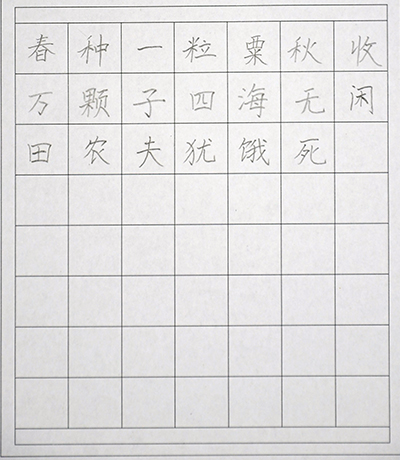 春种一粒粟秋收
万颗子四海无闲
田农夫犹饿死